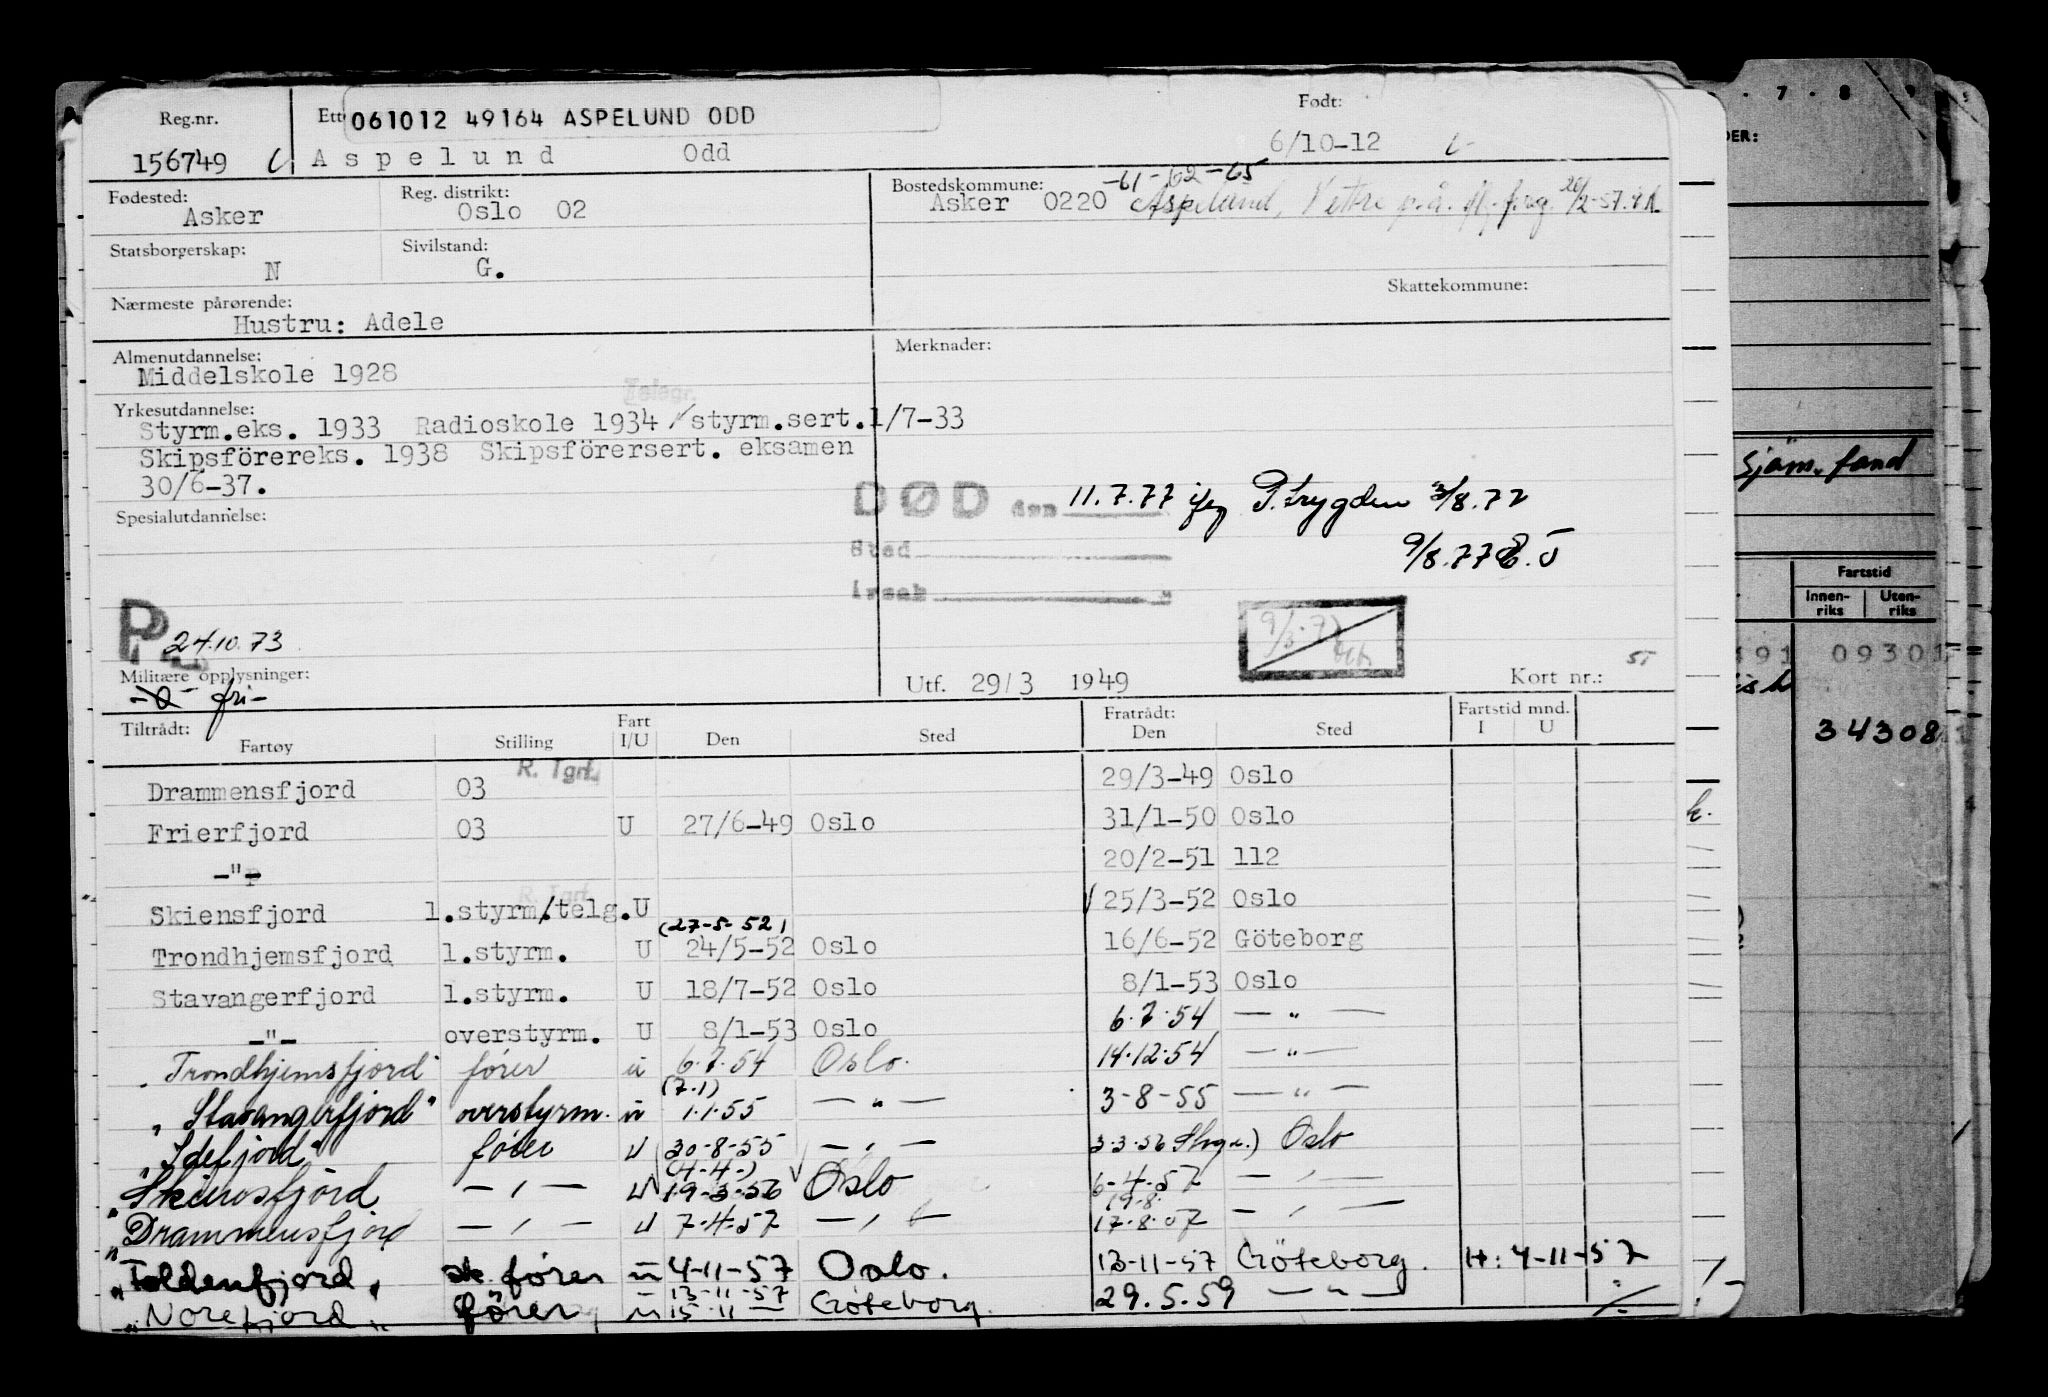 Reg.nr. Ett 061012 49164 ASPELUND ODD Født:
156749 Aspelund Odd 6/10-12
Fødested: Reg. distrikt: Bostedskommune: -61-62-65
Asker Oslo 02 Asker 0220 Aspelund, Vettre p.å.
Statsborgerskap: Sivilstand:
N G.
Skattekommune:
Nærmeste pårørende:
Hustru: Adele
Almenutdannelse: Merknader:
Middelskole 1928
Telegr.
Yrkesutdannelse:
Styrm.eks. 1933 Radioskole 1934 / styrm.sert.1/7-33
Skipsförereks. 1938 Skipsförersert. eksamen
30/6-37.
DØD den 11.7.77 P.trygden 3/8.77
Spesialutdannelse:
Sted 9/8.77
Årsak
24.10.73
Militære opplysninger:
fri-
Utf. 29/3 1949 Kort nr.:
Tiltrådt: Fart Fratrådt: Fartstid mnd.
Fartøy Stilling I/U Den Sted Den Sted I U
Drammensfjord 03 R. Tgrf. 29/3-49 Oslo
Frierfjord 03 U 27/6-49 Oslo 31/1-50 Oslo
-"- 20/2-51 112
R. Tgrf.
Skiensfjord 1.styrm/telg. U 25/3-52 Oslo
(27-5-52)
Trondhjemsfjord 1.styrm. U 24/5-52 Oslo 16/6-52 Göteborg
Stavangerfjord 1.styrm. U 18/7-52 Oslo 8/1-53 Oslo
-"- overstyrm. U 8/1-53 Oslo 6.7.54 — " —
"Trondhjemsfjord" fører u 6.7.54 Oslo. 14.12.54 — " —
(7.1)
"Stavangerfjord" overstyrm. u 1.1.55 — " — 3-8-55 — " —
"Idefjord" fører u 30-8-55 — " — 3.3.56 Oslo
(4-4-)
"Skiensfjord — " — u 19-3-56 Oslo 6-4-57 — " —
19-8.
"Drammensfjord — " — u 7-4-57 — " — 17.8.57 — " —
"Foldenfjord" fører u 4-11-57 Oslo. 13-11-57 Göteborg. H: 4-11-57
13-11-57
"Norefjord" fører u 15-11 — Göteborg. 29.5.59 — " —
7 8 9
DER:
Sjøm. fond
Fartstid
Innen-riks Uten-riks
491 09301
34308